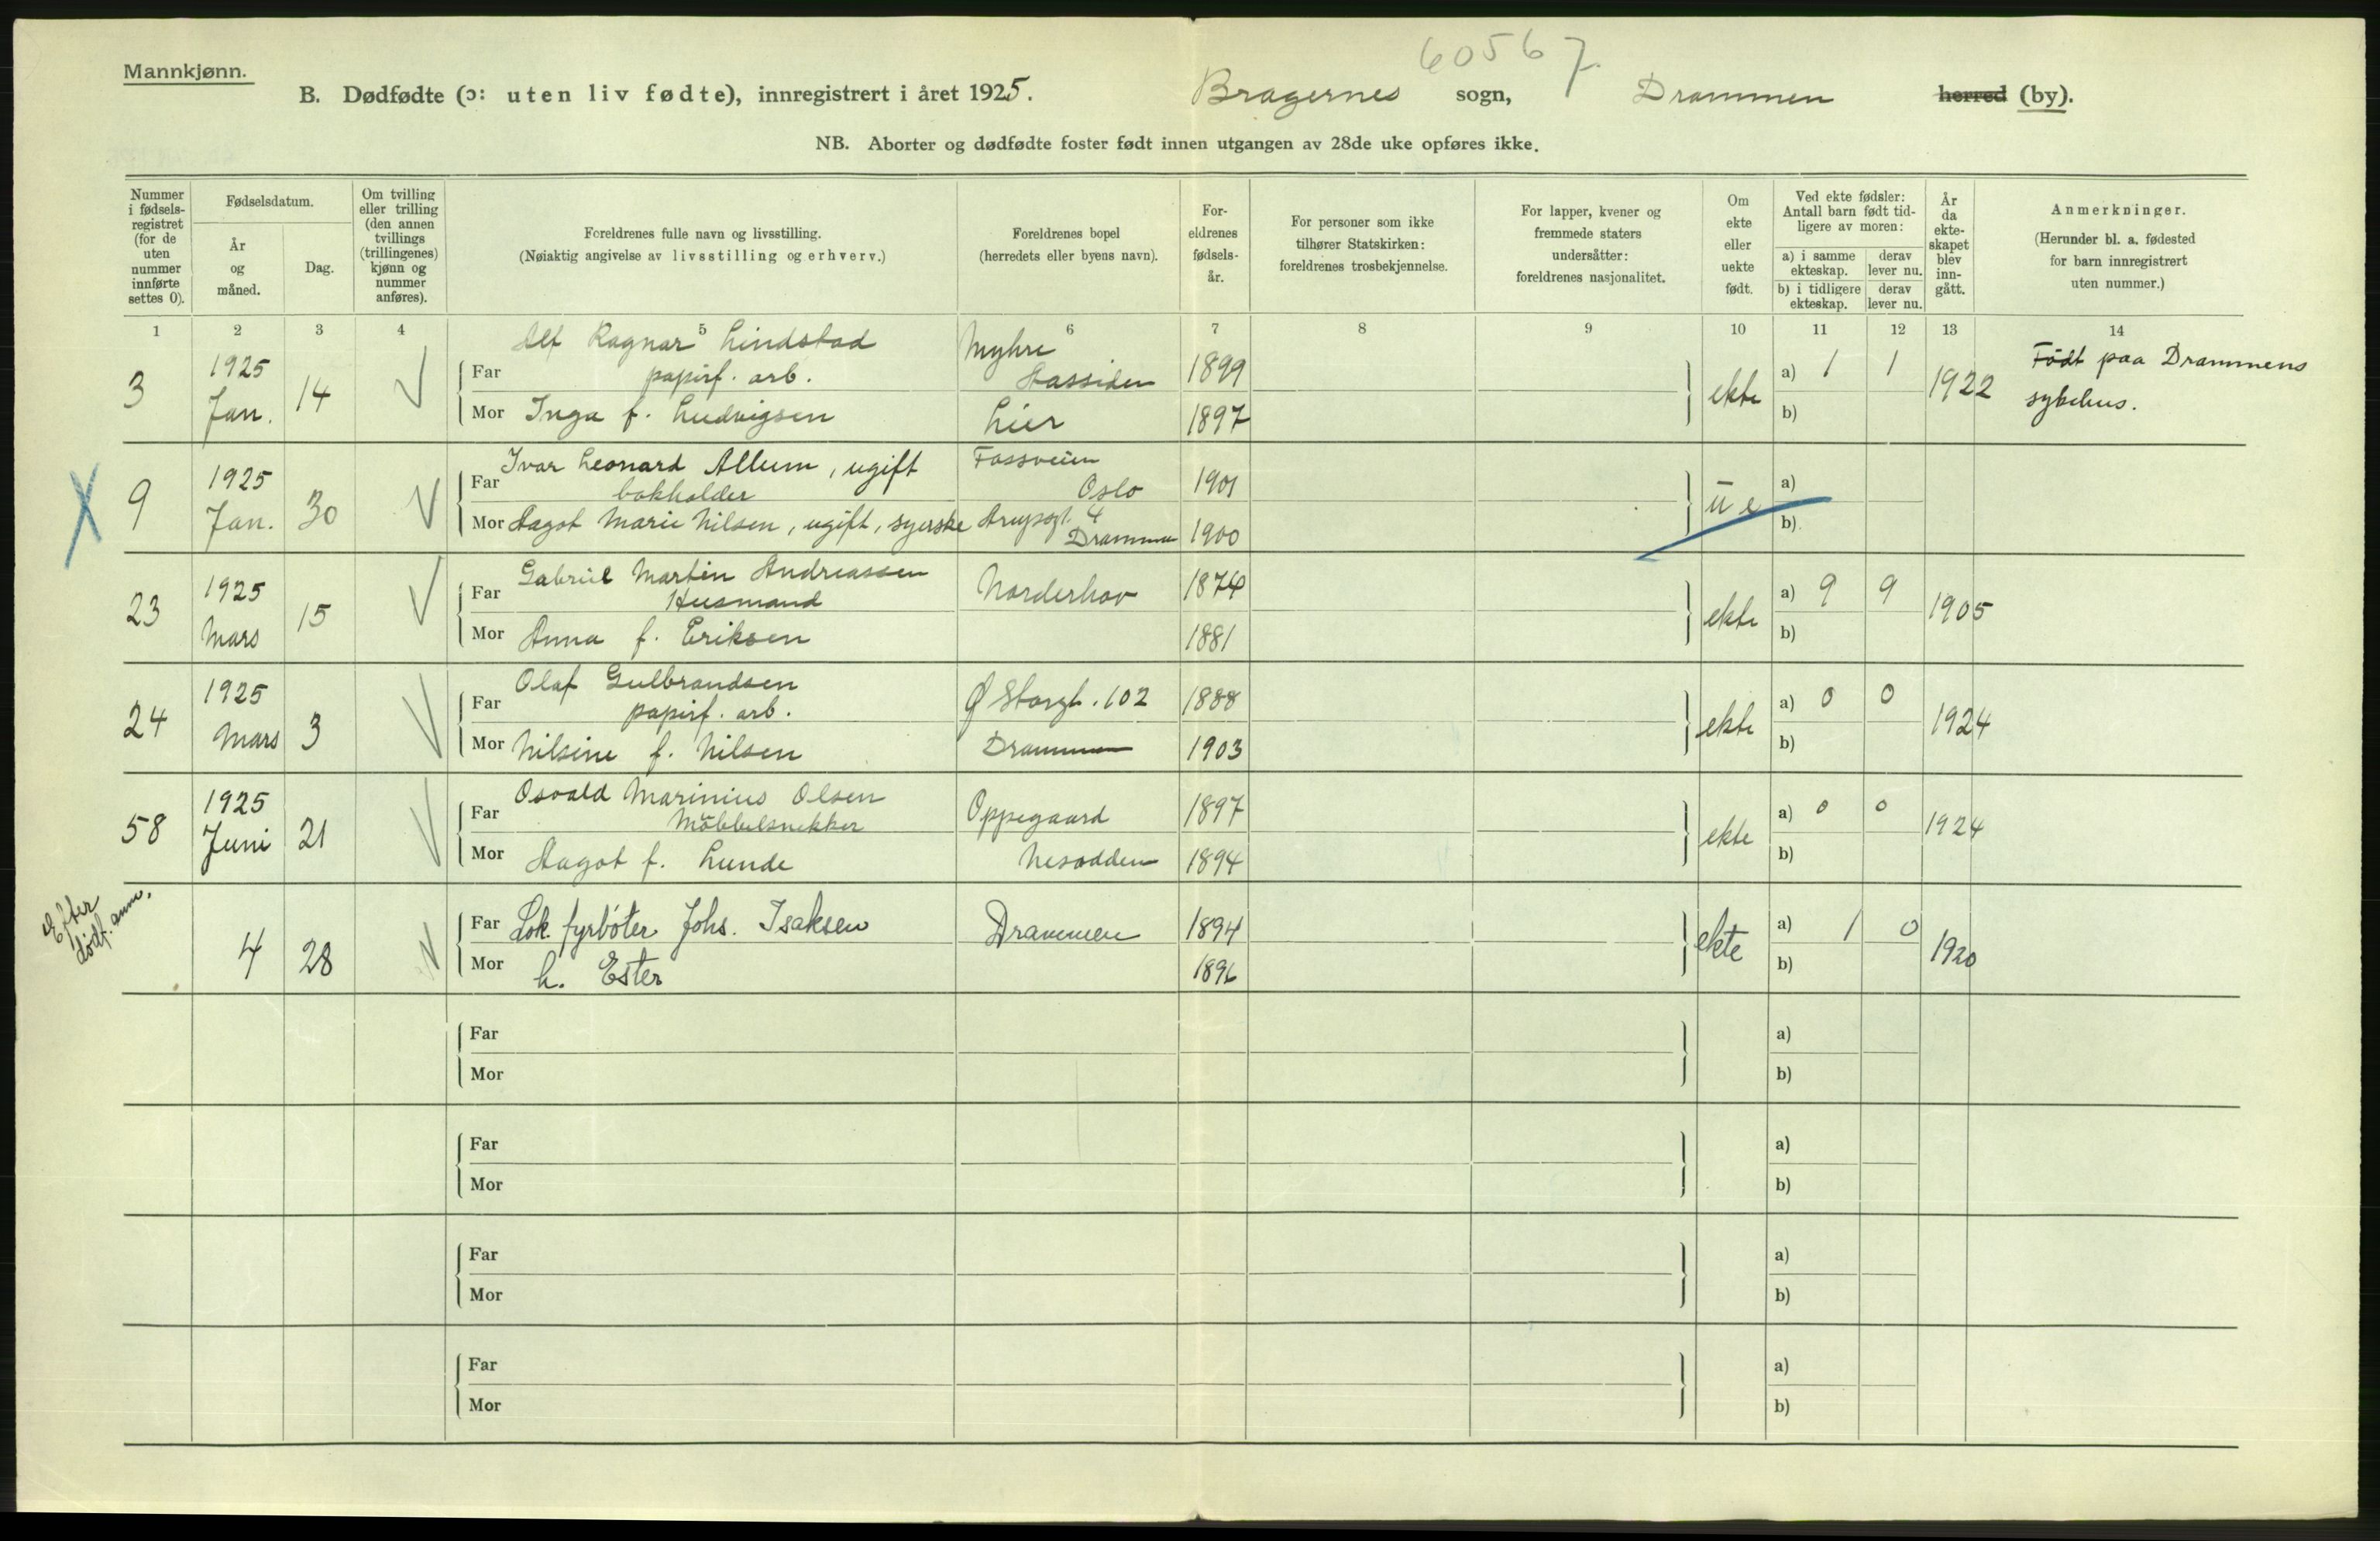 Mannkjønn.
60567
B. Dødfødte (ɔ: uten liv fødte), innregistrert i året 1925. Bragernes sogn, Drammen herred (by).
NB. Aborter og dødfødte foster født innen utgangen av 28de uke opføres ikke.
Nummer i fødsels-registret (for de uten nummer innførte settes 0).
Fødselsdatum.
År og måned.
Dag.
Om tvilling eller trilling (den annen tvillings (trillingenes) kjønn og nummer anføres).
Foreldrenes fulle navn og livsstilling.
(Nøiaktig angivelse av livsstilling og erhverv.)
Foreldrenes bopel
(herredets eller byens navn).
For-eldrenes fødsels-år.
For personer som ikke tilhører Statskirken: foreldrenes trosbekjennelse.
For lapper, kvener og fremmede staters undersåtter: foreldrenes nasjonalitet.
Om ekte eller uekte født.
Ved ekte fødsler: Antall barn født tid-ligere av moren:
a) i samme ekteskap. derav lever nu.
b) i tidligere ekteskap. derav lever nu.
År da ekte-skapet blev inn-gått.
Anmerkninger.
(Herunder bl. a. fødested for barn innregistrert uten nummer.)
1 2 3 4 5 6 7 8 9 10 11 12 13 14
Alf Ragnar Lindstad Myhre Født paa Drammens
3 1925 Jan. 14 Far papirf. arb. Aassiden 1899 ekte a) 1 1 1922 sykehus.
Mor Inga f. Ludvigsen Lier 1897 b)
Ivar Leonard Allum, ugift Fossveien
9 1925 Jan. 30 Far bokholder Oslo 1901 u e a)
Mor Aagot Marie Nilsen, ugift, syerske 4 Drammen 1900 b)
Gabriel Martin Andreassen
23 1925 Mars 15 Far Husmand Norderhov 1874 ekte a) 9 9 1905
Mor Anna f. Eriksen 1881 b)
Olaf Gulbrandsen
24 1925 Mars 3 Far papirf. arb. Ø Storgt. 102 1888 ekte a) 0 0 1924
Mor Nilsine f. Nilsen Drammen 1903 b)
Osvald Marinius Olsen
58 1925 Juni 21 Far Möbbelsnekker Oppegaard 1897 ekte a) 0 0 1924
Mor Aagot f. Lunde Nesodden 1894 b)
Efter
dödf. anm.
4 28 Far Lok. fyrböter Johs. Isaksen Drammen 1894 ekte a) 1 0 1920
Mor h. Ester 1896 b)
Far a)
Mor b)
Far a)
Mor b)
Far a)
Mor b)
Far a)
Mor b)